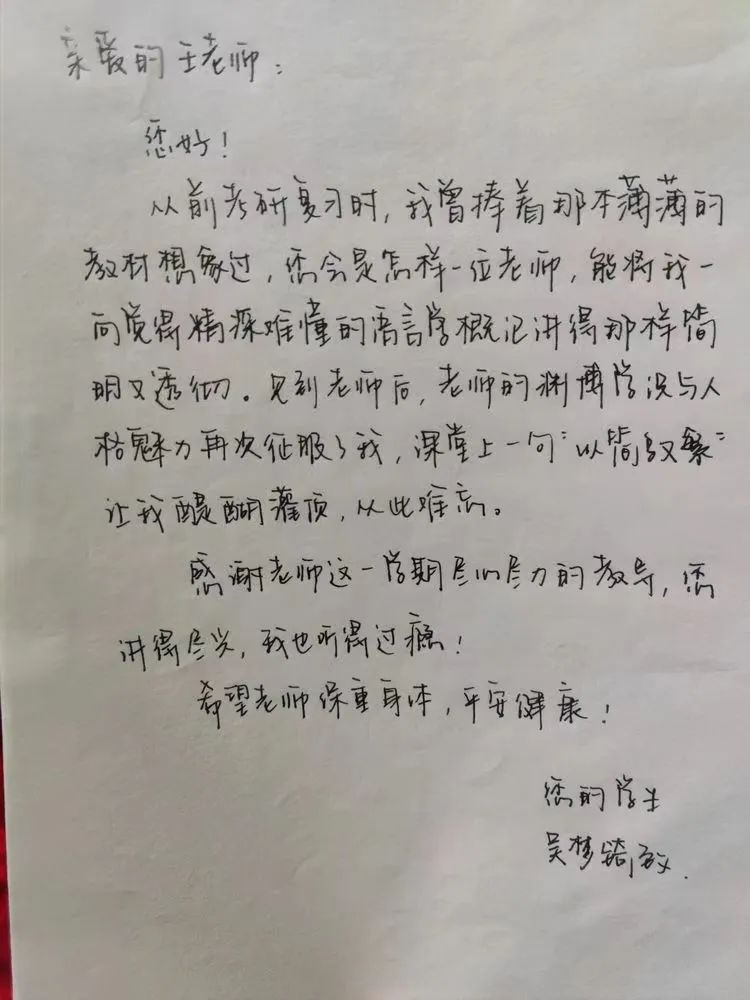 亲爱的王老师：
您好！
从前考研复习时，我曾捧着那本薄薄的
教材想象过，您会是怎样一位老师，能将我一
向觉得精深难懂的语言学概论讲得那样简
明又透彻。见到老师后，老师的渊博学识与人
格魅力再次征服了我，课堂上一句“以简驭繁”
让我醍醐灌顶，从此难忘。
感谢老师这一学期尽心尽力的教导，您
讲得尽兴，我也听得过瘾！
希望老师保重身体，平安健康！
您的学生
吴梦琦敬.